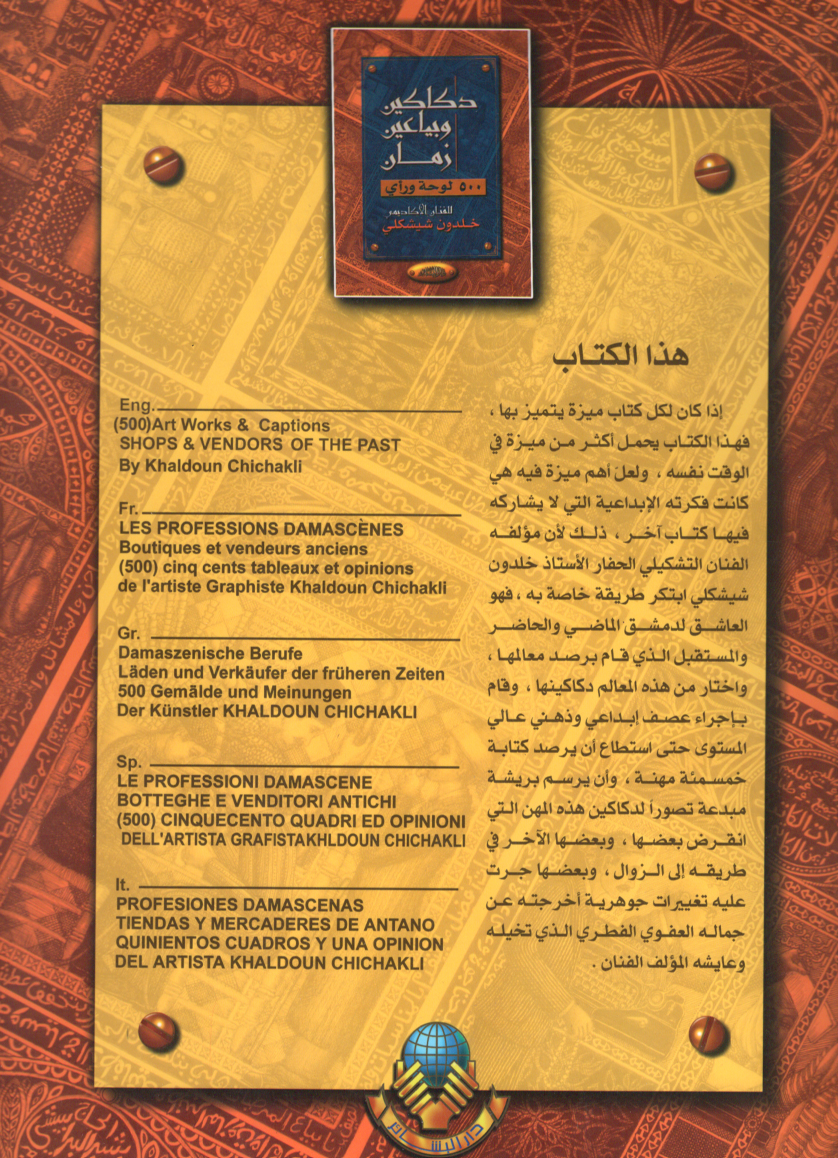 دكاكين
وبياعين
زمان
٥٠٠ لوحة ورأي
للفنان الأكاديمي
خلدون شيشكلي
هذا الكتـاب
إذا كان لكل كتاب ميزة يتميز بها ،
فهذا الكتاب يحمل أكثر من ميزة في
الوقت نفسه ، ولعل أهم ميزة فيه هي
كانت فكرته الإبداعية التي لا يشاركه
فيها كتاب آخر ، ذلك لأن مؤلفه
الفنان التشكيلي الحفار الأستاذ خلدون
شيشكلي ابتكر طريقة خاصة به ، فهو
العاشق لدمشق الماضي والحاضر
والمستقبل الذي قام برصد معالمها ،
واختار من هذه المعالم دكاكينها ، وقام
بإجراء عصف إبداعي وذهني عالي
المستوى حتى استطاع أن يرصد كتابة
خمسمئة مهنة ، وأن يرسم بريشة
مبدعة تصوراً لدكاكين هذه المهن التي
انقرض بعضها ، وبعضها الآخر في
طريقه إلى الزوال ، وبعضها جرت
عليه تغييرات جوهرية أخرجته عن
جماله العفوي الفطري الذي تخيله
وعايشه المؤلف الفنان .
Eng.
(500)Art Works & Captions
SHOPS & VENDORS OF THE PAST
By Khaldoun Chichakli
Fr.
LES PROFESSIONS DAMASCÈNES
Boutiques et vendeurs anciens
(500) cinq cents tableaux et opinions
de l'artiste Graphiste Khaldoun Chichakli
Gr.
Damaszenische Berufe
Läden und Verkäufer der früheren Zeiten
500 Gemälde und Meinungen
Der Künstler KHALDOUN CHICHAKLI
Sp.
LE PROFESSIONI DAMASCENE
BOTTEGHE E VENDITORI ANTICHI
(500) CINQUECENTO QUADRI ED OPINIONI
DELL'ARTISTA GRAFISTAKHLDOUN CHICHAKLI
It.
PROFESIONES DAMASCENAS
TIENDAS Y MERCADERES DE ANTANO
QUINIENTOS CUADROS Y UNA OPINION
DEL ARTISTA KHALDOUN CHICHAKLI
دار البشائر